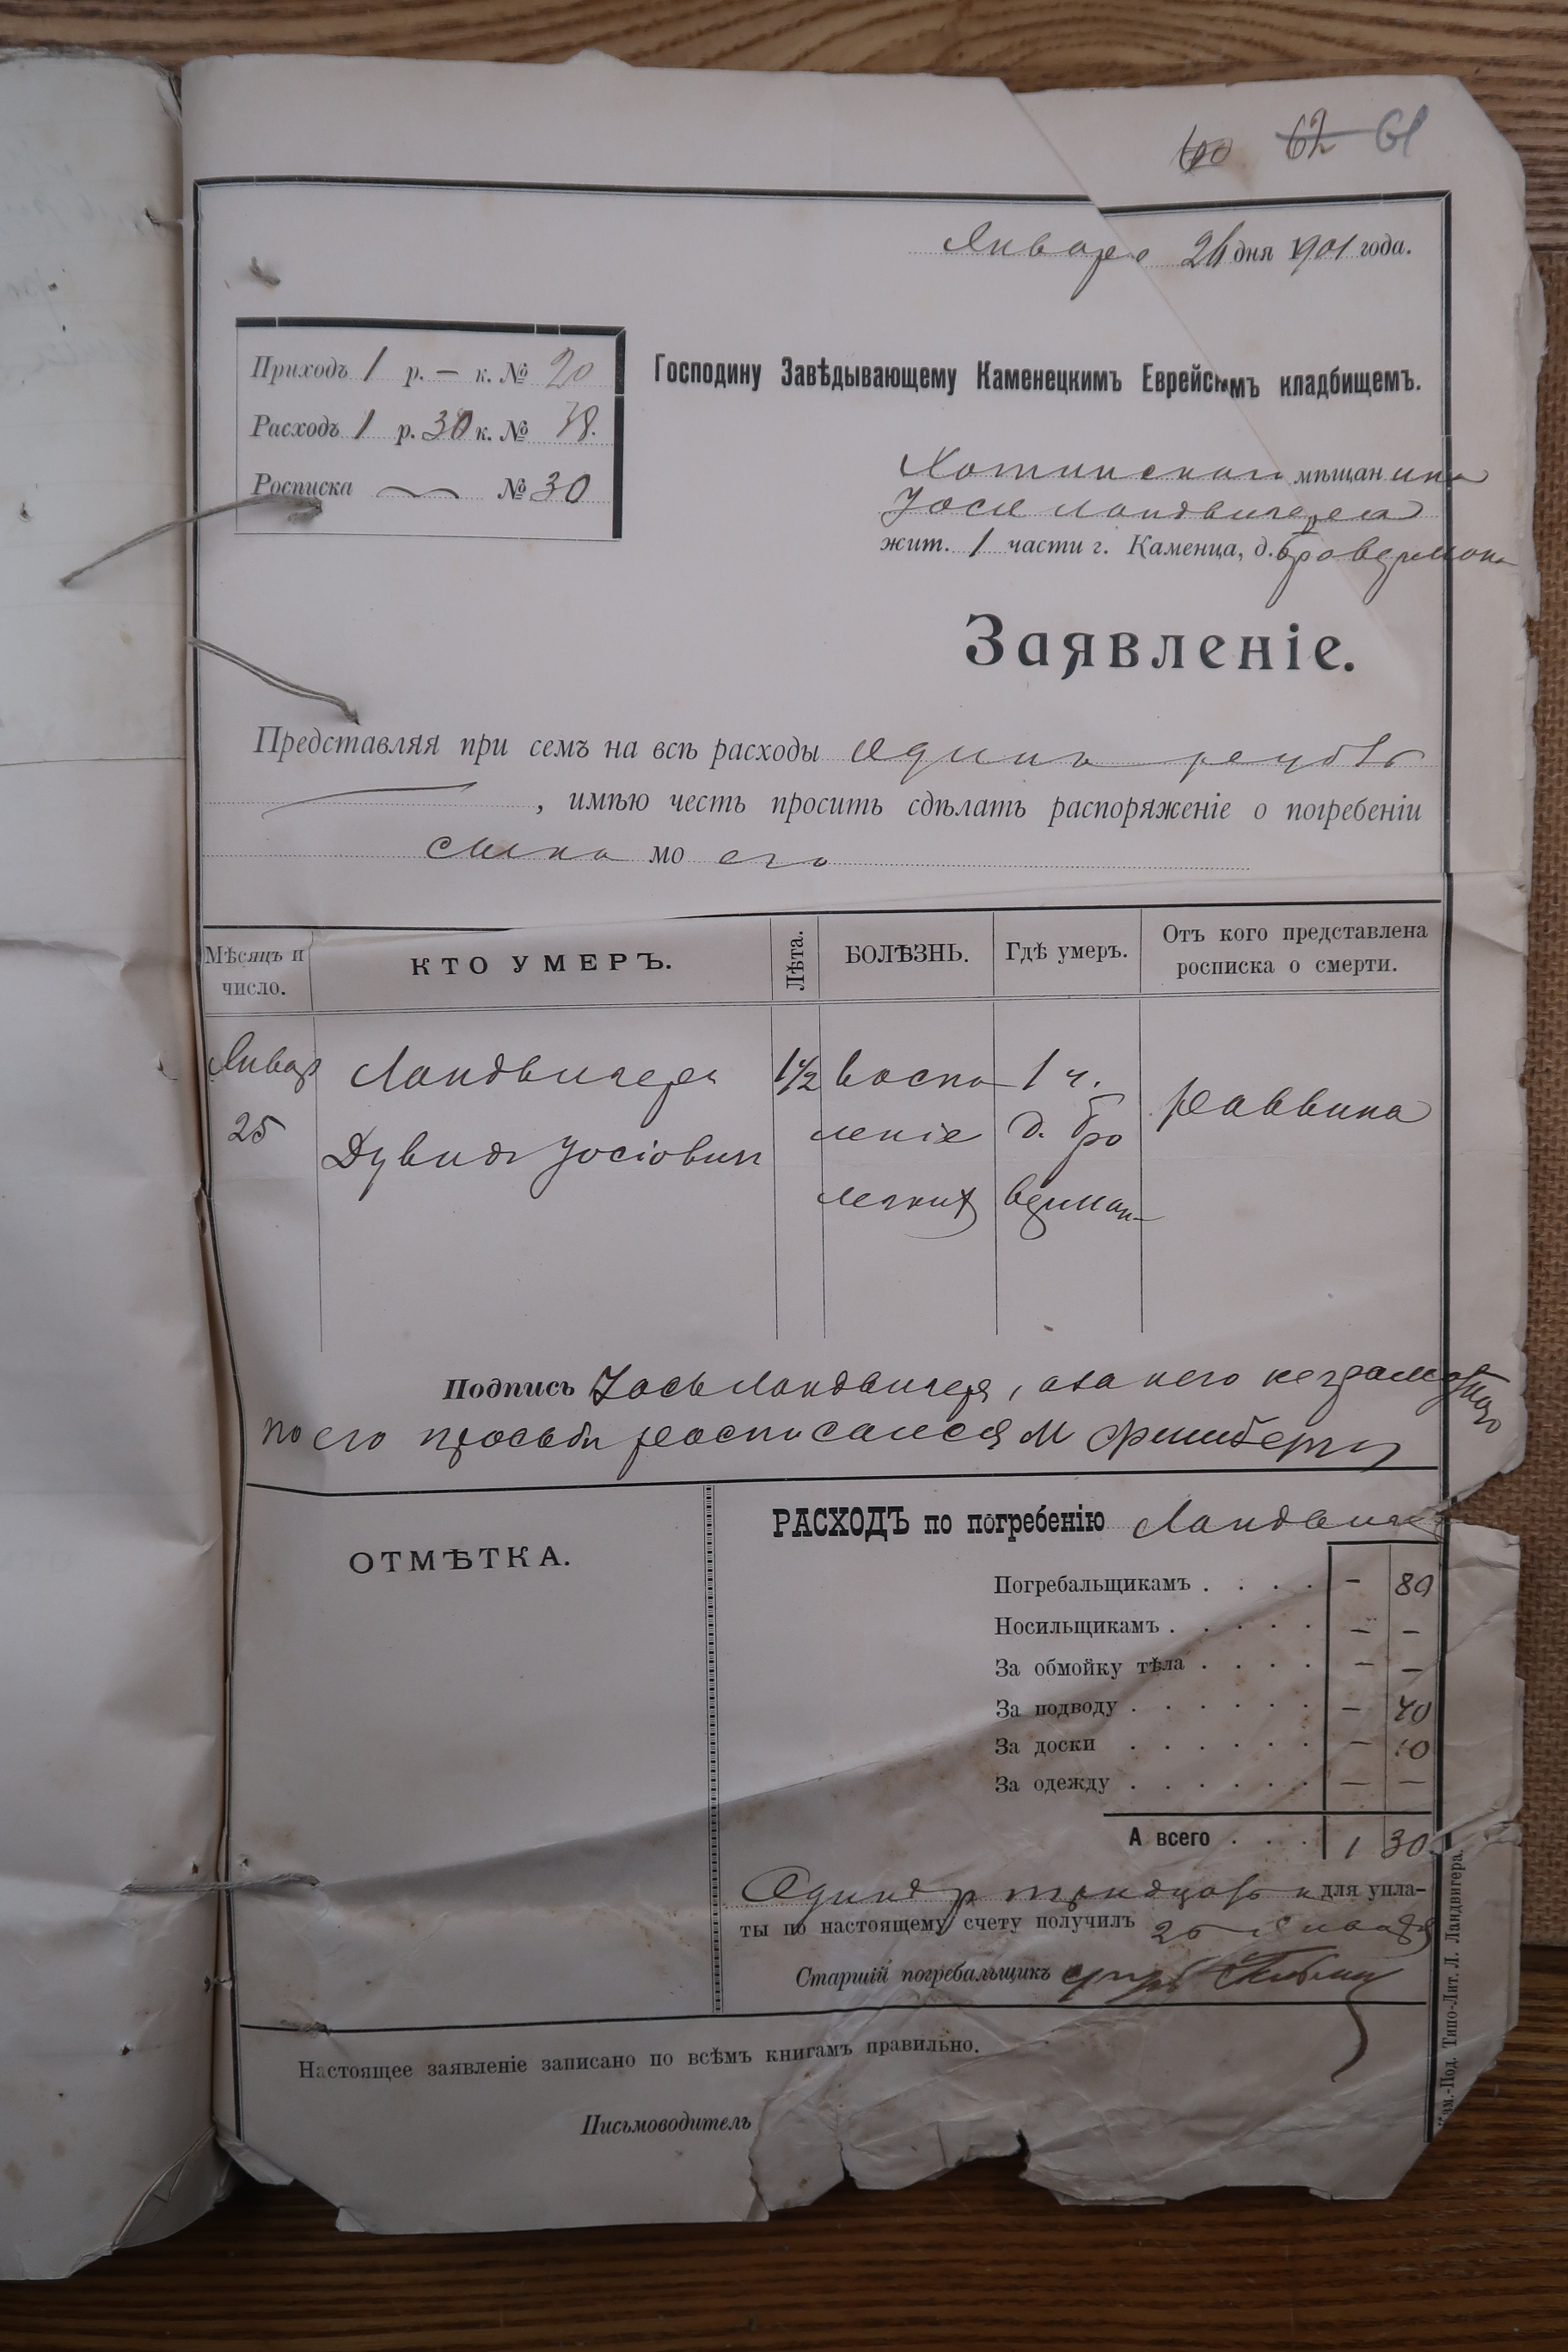 60 62 61
Января 26 дня 1901 года.
Приходъ 1 р. — к. № 20
Расходъ 1 р. 30 к. № 38.
Росписка № 30
Господину Завѣдывающему Каменецкимъ Еврейскимъ кладбищемъ.
Хотинскаго мѣщанина
Іося Ландвигера
жит. 1 части г. Каменца, д. Бровермана
Заявленіе.
Представляя при семъ на всѣ расходы одинъ рубль
, имѣю честь просить сдѣлать распоряженіе о погребеніи
сына моего
Мѣсяцъ и число.
КТО УМЕРЪ.
Лѣта.
БОЛѢЗНЬ.
Гдѣ умеръ.
Отъ кого представлена росписка о смерти.
Январ 25
Ландвигеръ
Дувидъ Іосіович
1½
воспа
леніе
легких
1 ч.
д. Бро
верман
раввина
Подпись Іось Ландвигеръ, а за него неграмотнаго
по его просьбѣ росписался М Фишбергъ
ОТМѢТКА.
РАСХОДЪ по погребенію Ландвиг
Погребальщикамъ . . . . — 80
Носильщикамъ . . . . . — —
За обмойку тѣла . . . . — —
За подводу . . . . . . — 40
За доски . . . . . . — 10
За одежду . . . . . . — —
А всего . . . 1 30
Один р тридцать к для упла-
ты по настоящему счету получилъ 26 Января
Старшій погребальщикъ
Настоящее заявленіе записано по всѣмъ книгамъ правильно.
Письмоводитель
Кам.-Под. Типо-Лит. Л. Ландвигера.